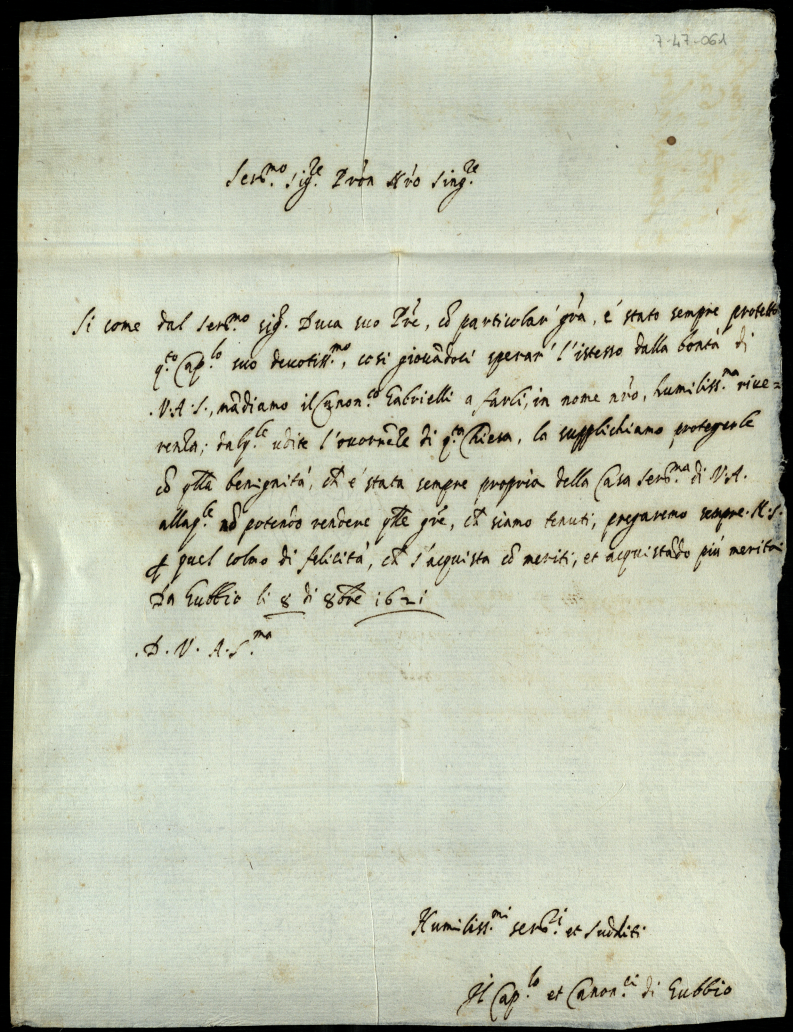 7-47-061
Ser.mo Sig.re Pron Nro Sing.re
Si come dal Ser.mo Sig.r Duca suo Pre, cō particolar' gra, é stato sempre protetto
q.to Cap.lo suo devotiss.mo, cosi giovādoci sperar' l'istesso dalla bontá di
.V.A.S., mādiamo il Canon.co Gabrielli a farli, in nome nro, humiliss.ma rive=
renza; dalq.le udite l'occorrēze di q.ta Chiesa, la supplichiamo proteggerle
cō qlla benignitá, ch é stata sempre propria della Casa Ser.ma di V.A.
allaq.le nō potendo rendere qlle gre, ch siamo tenuti, pregaremo sempre N.S.
p quel colmo di felicitá, ch s'acquista cō meriti; et acquistādo piú meritri
Da Eubbio li 8 di 8bre 1621
.D. V. A. S.ma
Humiliss.mi ser.ri et sudditi
Il Cap.lo et Canon.ci di Eubbio